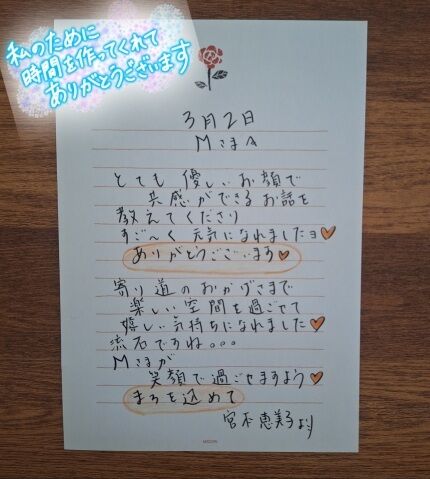 私のために
時間を作ってくれて
ありがとうございます
3月2日
Mさまへ
とても優しいお顔で
共感ができるお話を
教えてくださり
すご〜く元気になれましたヨ
ありがとうございます
寄り道のおかげさまで
楽しい空間を過ごせて
嬉しい気持ちになれました
流石ですね。。。
Mさまが
笑顔で過ごせますよう
まろを込めて
宮本恵美子より